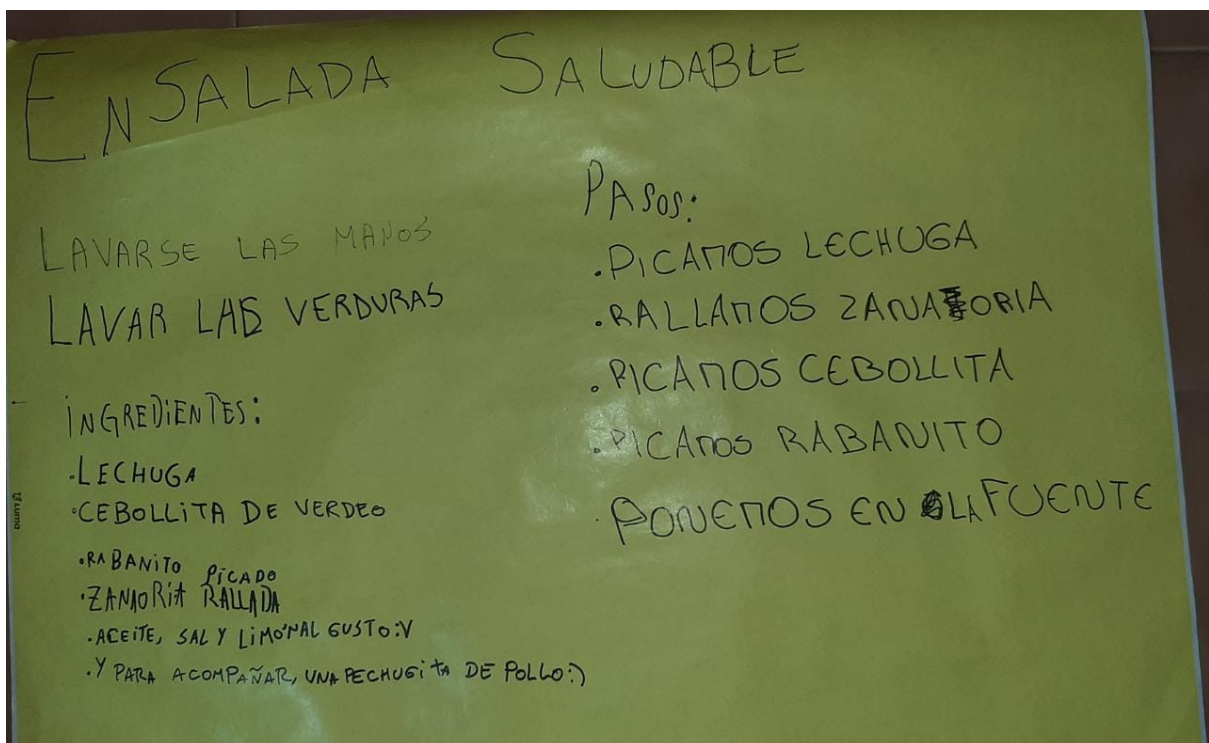 ENSALADA SALUDABLE
LAVARSE LAS MANOS
LAVAR LAS VERDURAS
INGREDIENTES:
·LECHUGA
·CEBOLLITA DE VERDEO
·RABANITO PICADO
·ZANAORIA RALLADA
·ACEITE, SAL Y LIMÓN AL GUSTO:V
·Y PARA ACOMPAÑAR, UNA PECHUGITA DE POLLO:)
PASOS:
·PICAMOS LECHUGA
·RALLAMOS ZANAORIA
·PICAMOS CEBOLLITA
·PICAMOS RABANITO
·PONEMOS EN LA FUENTE
Luma